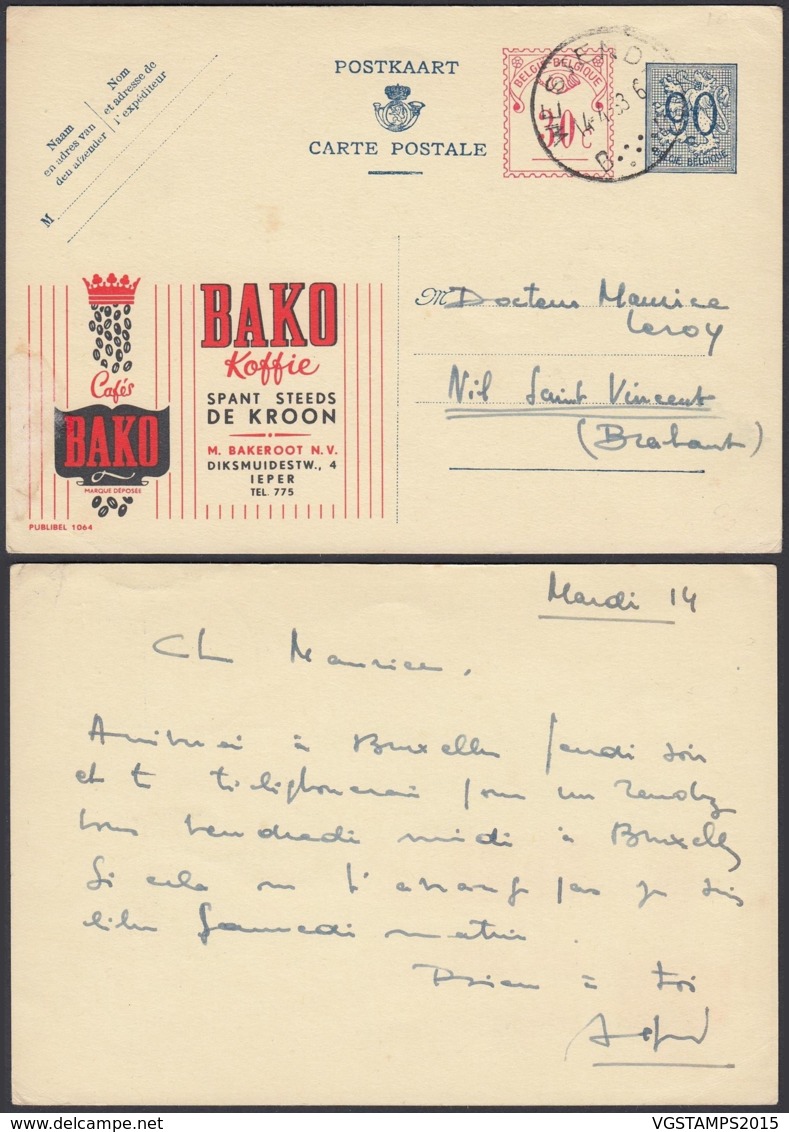 POSTKAART
CARTE POSTALE
Naam
en adres van
den afzender
Nom
et adresse de
l'expéditeur
M
BELGIE-BELGIQUE
90
C
BELGIE BELGIQUE
14-4-53
6
B
Cafés
BAKO
MARQUE DÉPOSÉE
BAKO
Koffie
SPANT STEEDS
DE KROON
M. BAKEROOT N.V.
DIKSMUIDESTW., 4
IEPER
TEL. 775
PUBLIBEL 1064
M Docteur Maurice
Leroy
Nil Saint Vincent
(Brabant)
Mardi 14
Ch Maurice,
Arriverai à Bruxelles Jeudi soir
et te téléphonerai pour un rendez
vous vendredi midi à Bruxelles
Si cela ne t'arrange pas je suis
libre Samedi matin.
Bien à toi
VGSTAMPS2015